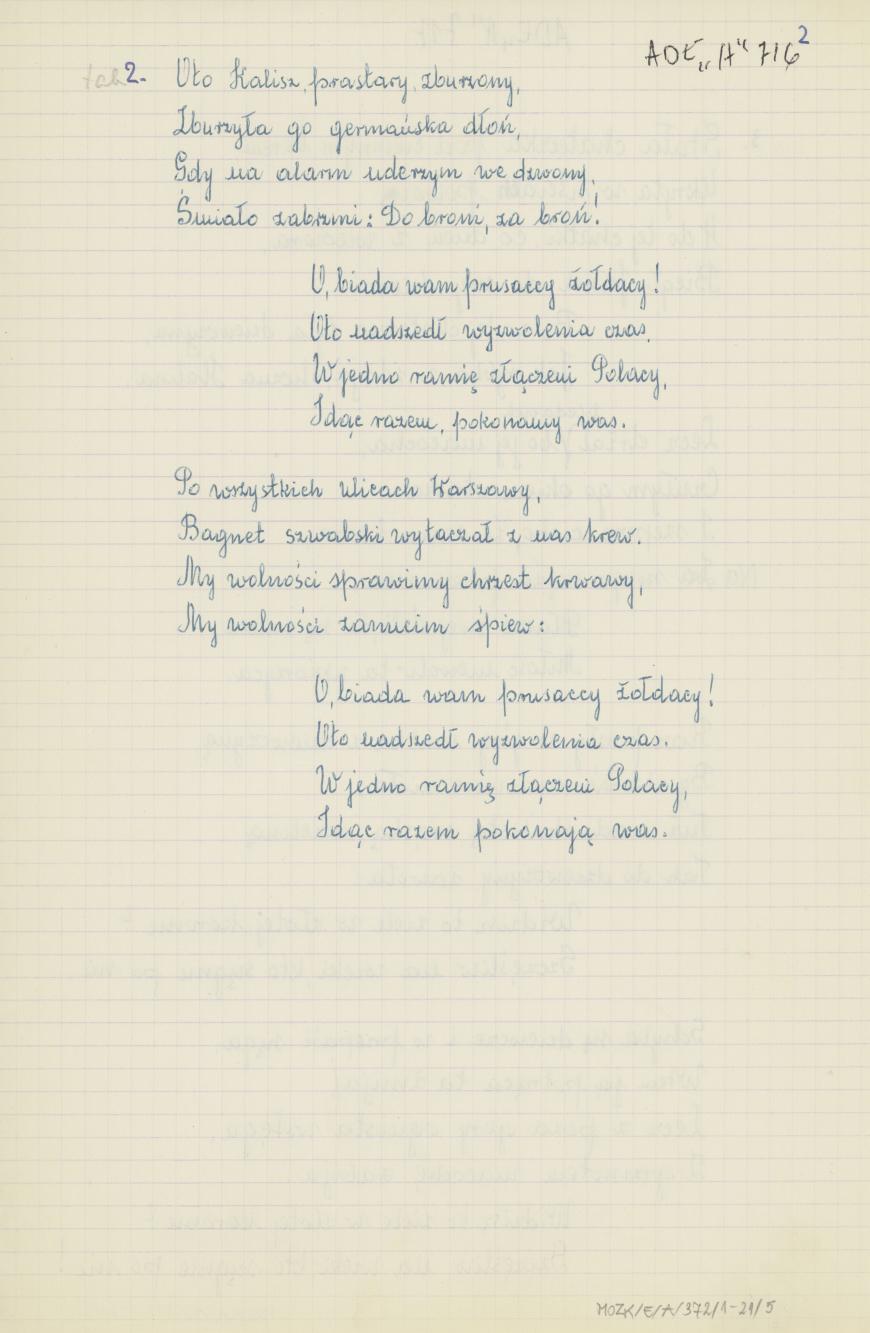 AOŁ „A" 716 2
2. Oto Kalisz, prastary, zburzony,
Zburzyła go germańska dłoń,
Gdy na alarm uderzym we dzwony,
Śmiało zabrzmi: Do broni, za broń!
O, biada wam prusaccy żołdacy!
Oto nadszedł wyzwolenia czas.
W jedno ramię złączeni Polacy,
Idąc razem, pokonamy was.
Po wszystkich ulicach Warszawy,
Bagnet szwabski wytaczał z nas krew.
My wolności sprawimy chrzest krwawy,
My wolności zanucim śpiew:
O, biada wam prusaccy żołdacy!
Oto nadszedł wyzwolenia czas.
W jedno ramię złączeni Polacy,
Idąc razem pokonają was.
MOZK/E/A/372/1-21/5